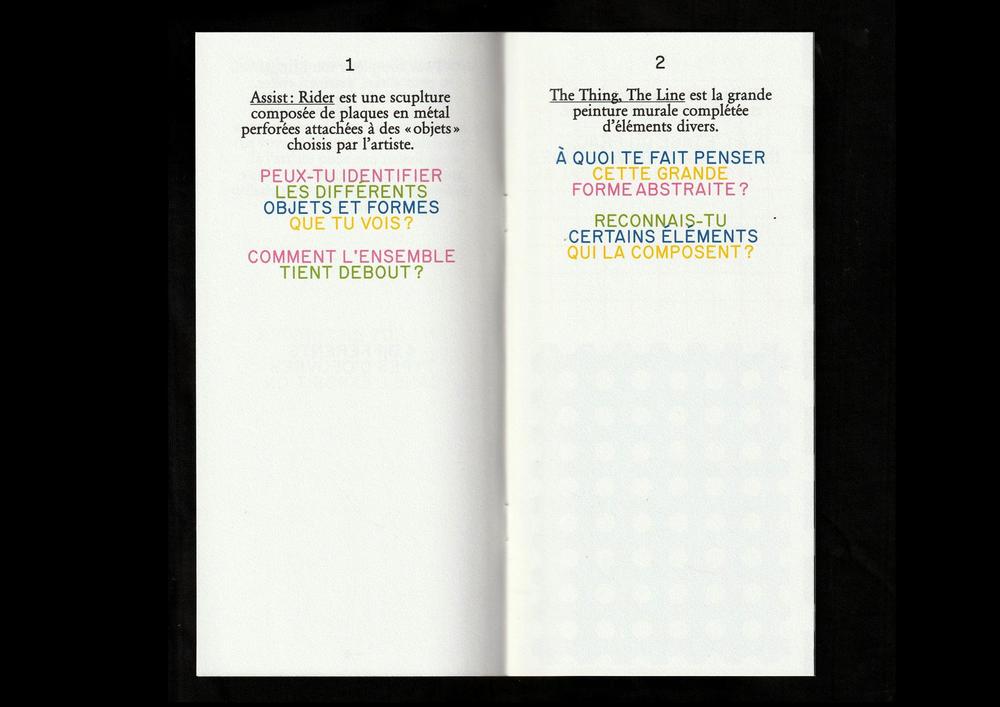 1
Assist : Rider est une scuplture
composée de plaques en métal
perforées attachées à des « objets »
choisis par l'artiste.
PEUX-TU IDENTIFIER
LES DIFFÉRENTS
OBJETS ET FORMES
QUE TU VOIS ?
COMMENT L'ENSEMBLE
TIENT DEBOUT ?
2
The Thing, The Line est la grande
peinture murale complétée
d'éléments divers.
À QUOI TE FAIT PENSER
CETTE GRANDE
FORME ABSTRAITE ?
RECONNAIS-TU
CERTAINS ÉLÉMENTS
QUI LA COMPOSENT ?